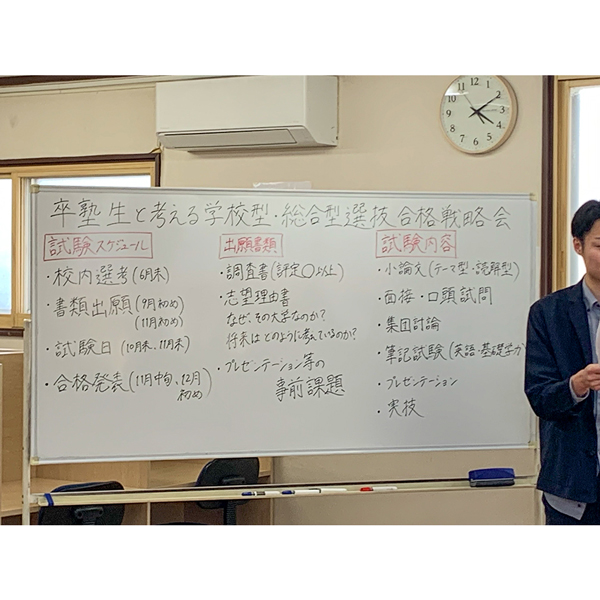 卒塾生と考える学校型・総合型選抜合格戦略会
試験スケジュール
・校内選考(6月末)
・書類出願(9月初め)
(11月初め)
・試験日(10月末、11月末)
・合格発表(11月中旬、12月
初め)
出願書類
・調査書(評定○以上)
・志望理由書
なぜ、その大学なのか?
将来はどのように考えているのか?
・プレゼンテーション等の
事前課題
試験内容
・小論文(テーマ型・読解型)
・面接・口頭試問
・集団討論
・筆記試験(英語・基礎学力
・プレゼンテーション
・実技
12
1
2
3
4
5
6
7
8
9
10
11